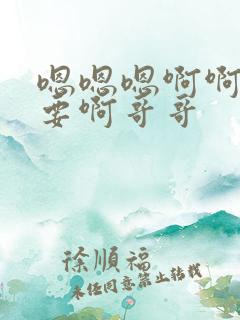 嗯嗯嗯啊啊
要啊哥哥
徐順福
未经同意禁止转载